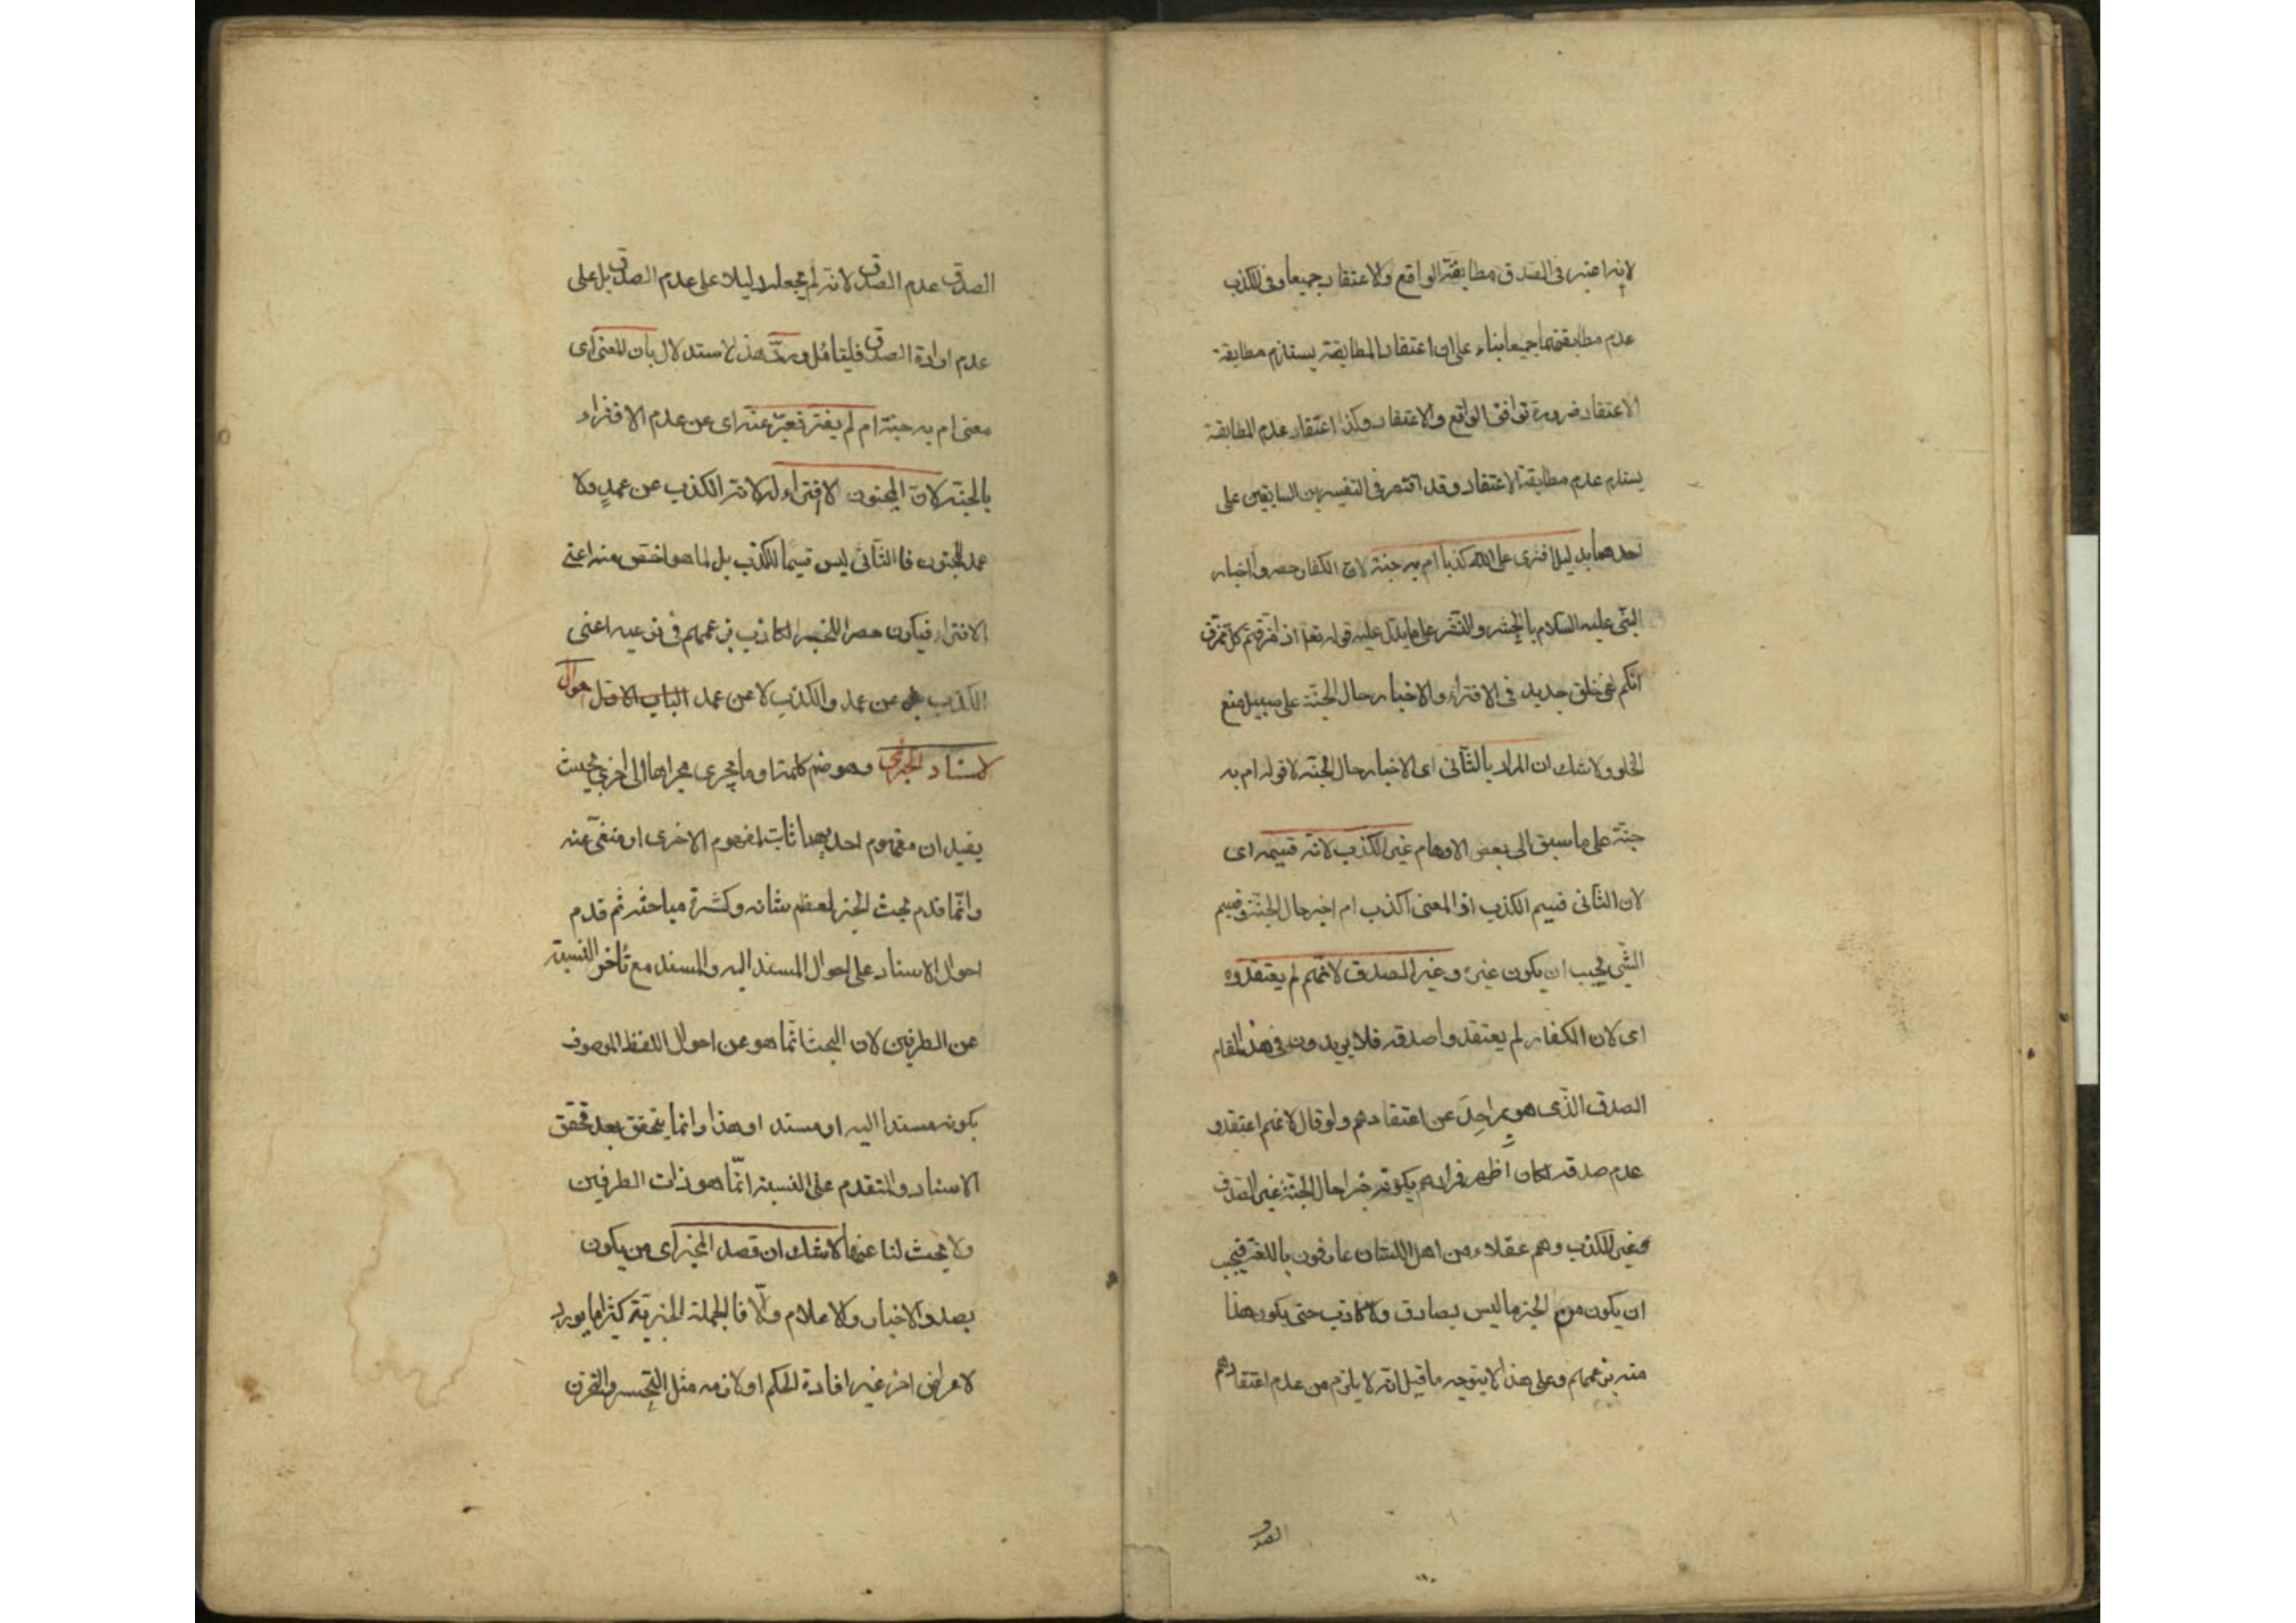 لانه اعتبر فى الصدق مطابقة الواقع والاعتقاد جميعا وفى الكذب
عدم مطابقتهما جميعا بناء على ان اعتقاد المطابقة يستلزم مطابقة
الاعتقاد ضرورة توافق الواقع والاعتقاد وكذا اعتقاد عدم المطابقة
يستلزم عدم مطابقة الاعتقاد وقد اقتصر فى التفسيرين السابقين على
احدهما بدليل افترى على الله كذبا ام به جنة لان الكفار حصروا اخبار
النبى عليه السلام بالحشر والنشر على ما يدل عليه قوله تعا اذا مزقتم كل ممزق
انكم لفى خلق جديد فى الافتراء والاخبار حال الجنة على سبيل منع
الخلو ولا شك ان المراد بالثانى اى الاخبار حال الجنة لا قوله ام به
جنة على ما سبق الى بعض الاوهام غير الكذب لانه قسيمه اى
لان الثانى قسيم الكذب اذ المعنى اكذب ام اخبر حال الجنة وقسيم
الشى يجب ان يكون غيره وغير الصدق لانهم لم يعتقدوه
اى لان الكفار لم يعتقدوا صدقه فلا يريدون فى هذا المقام
الصدق الذى هو بمراحل عن اعتقادهم ولو قال لانهم اعتقدو
عدم صدقه لكان اظهر فمرادهم بكونه خبرا حال الجنة غير الصدق
وغير الكذب وهم عقلاء من اهل اللسان عارفون باللغة فيجب
ان يكون من الخبر ما ليس بصادق ولا كاذب حتى يكون هذا
منه بزعمهم وعلى هذا لا يتوجه ما قيل انه لا يلزم من عدم اعتقادهم
الصدق
الصدق عدم الصدق لانه لم يجعله دليلا على عدم الصدق بل على
عدم ارادة الصدق فليتامل ورد هذ الاستدلال بان المعنى اى
معنى ام به جنة ام لم يفتر فعبر عنه اى عن عدم الافتراء
بالجنة لان المجنون لا افتراء له لانه الكذب عن عمد ولا
عمد للمجنون فا الثانى ليس قسيما للكذب بل لما هو اخص منه اعنى
الافتراء فيكون حصرا للخبر الكاذب بزعمهم فى نوعيه اعنى
الكذب عن عمد والكذب لا عن عمد الباب الاول احوال
الاسناد الخبرى وهو ضم كلمة او ما يجرى مجراها الى اخرى بحيث
يفيد ان مفهوم احديهما ثابت لمفهوم الاخرى او منفى عنه
وانما قدم بحث الخبر لعظم شانه وكثرة مباحثه ثم قدم
احوال الاسناد على احوال المسند اليه والمسند مع تأخر النسبة
عن الطرفين لان البحث انما هو عن احوال اللفظ الموصوف
بكونه مسندا اليه او مسند او هذا وانما يتحقق بعد تحقق
الاسناد والمتقدم على النسبة انما هو ذات الطرفين
ولا بحث لنا عنهما لا شك ان قصد المخبر اى من يكون
بصدد الاخبار والاعلام والا فالجملة الخبرية كثيرا ما يورد
لاغراض اخر غير افادة الحكم او لازمه مثل التحسر والتحزن